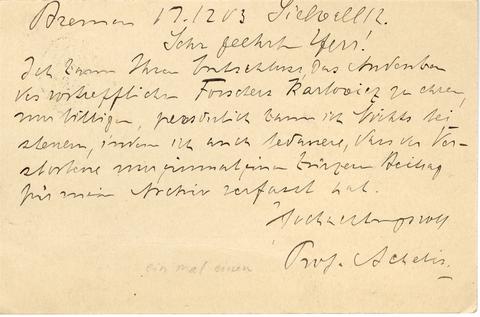 Bremen 17.12 03 Sielwall 12.
Sehr geehrter Herr!
Ich kann Ihren Entschluss, das Andenken
des vortrefflichen Forschers Karlowicz zu ehren,
nur billigen, persönlich kann ich Nichts bei
steuern, indem ich auch bedauere, dass der Ver-
storbene nur einmal einen kürzeren Beitrag
für mein Archiv verfasst hat.
Hochachtungsvoll
Prof. Achelis.
ein mal einen